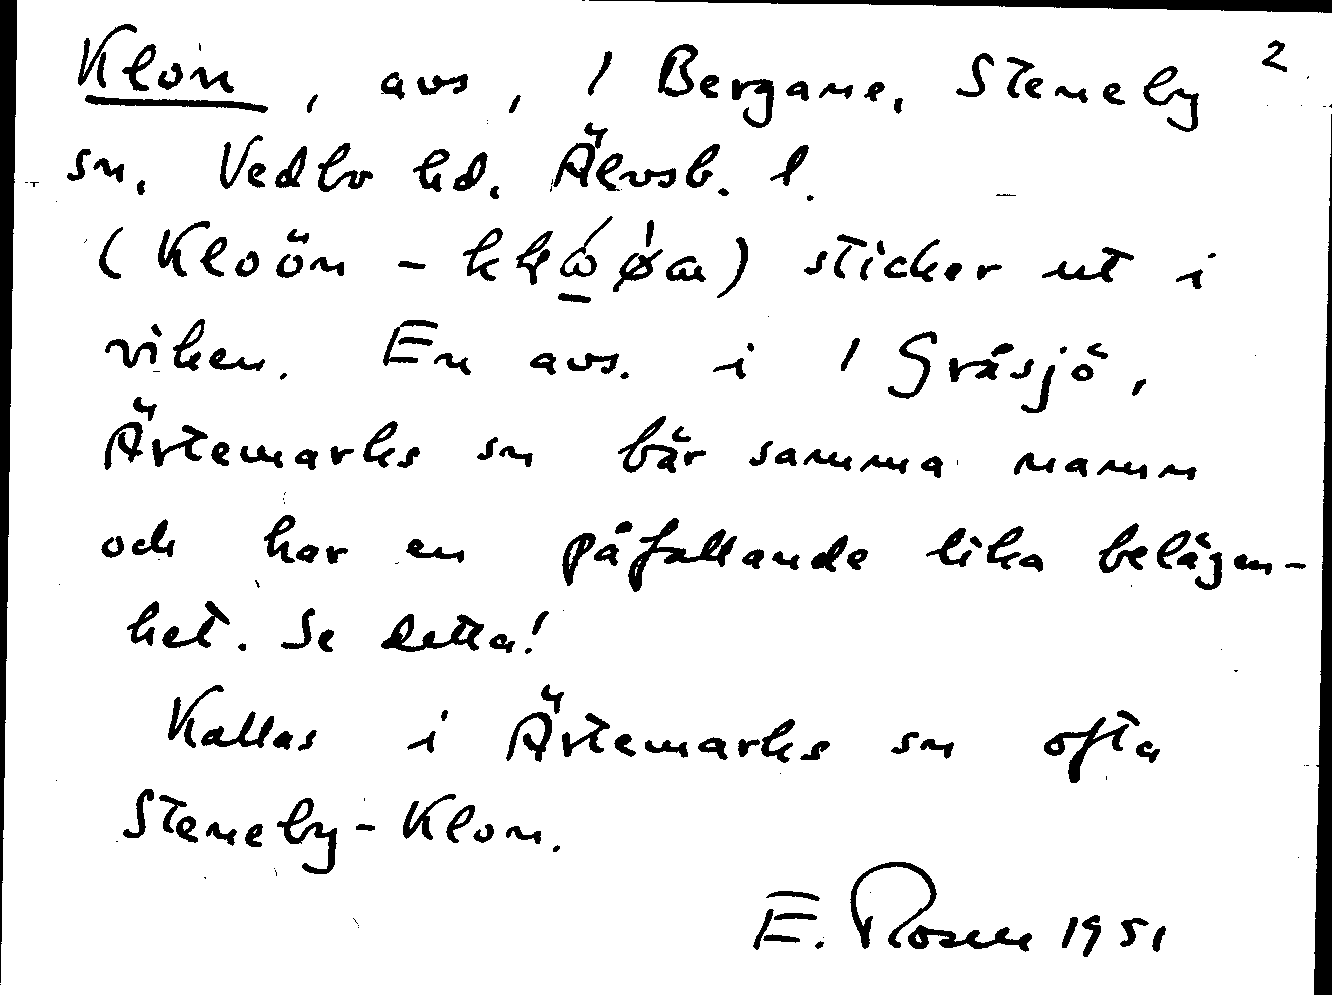 2
Klon, avs, / Bergane, Steneby
sn. Vedbo hd. Älvsb. l.
(Kloön - ) sticker ut i
viken. En avs. i / Gråsjö,
Ärtemarks sn bär samma namn
och har en påfallande lika belägen-
het. Se detta!
Kallas i Ärtemarks sn ofta
Steneby-Klon.
E. Rosen 1951